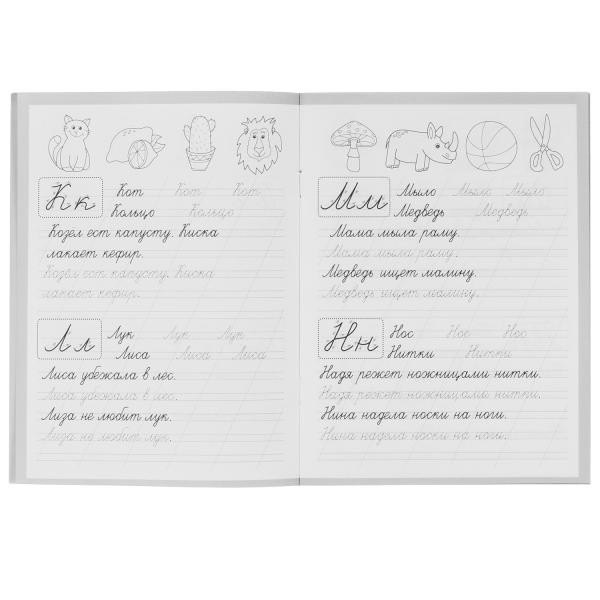 Кк Кот Кот Кот
Кольцо Кольцо
Козёл ест капусту. Киска
лакает кефир.
Козёл ест капусту. Киска
лакает кефир.
Лл Лук Лук Лук
Лиса Лиса Лиса
Лиса убежала в лес.
Лиса убежала в лес.
Лиза не любит лук.
Лиза не любит лук.
Мм Мыло Мыло Мыло
Медведь Медведь
Мама мыла раму.
Мама мыла раму.
Медведь ищет малину.
Медведь ищет малину.
Нн Нос Нос Нос
Нитки Нитки
Надя режет ножницами нитки.
Надя режет ножницами нитки.
Нина надела носки на ноги.
Нина надела носки на ноги.